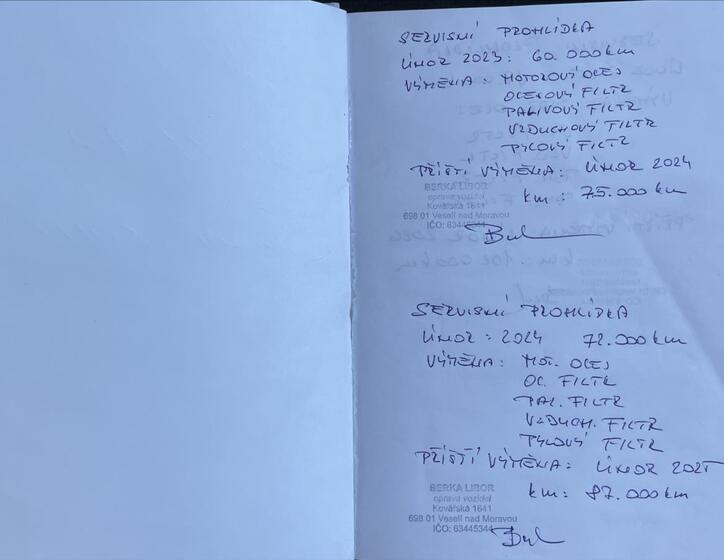 SERVISNÍ PROHLÍDKA
ÚNOR 2023: 60.000 km
VÝMĚNA: MOTOROVÝ OLEJ
OLEJOVÝ FILTR
PALIVOVÝ FILTR
VZDUCHOVÝ FILTR
PYLOVÝ FILTR
PŘÍŠTÍ VÝMĚNA: ÚNOR 2024
km: 75.000 km
BERKA LIBOR
oprava vozidel
Kovářská 1641
698 01 Veselí nad Moravou
IČO: 63445344
SERVISNÍ PROHLÍDKA
ÚNOR: 2024 72.000 km
VÝMĚNA: MOT. OLEJ
OL. FILTR
PAL. FILTR
VZDUCH. FILTR
PYLOVÝ FILTR
PŘÍŠTÍ VÝMĚNA: ÚNOR 2025
km: 87.000 km
BERKA LIBOR
oprava vozidel
Kovářská 1641
698 01 Veselí nad Moravou
IČO: 63445344